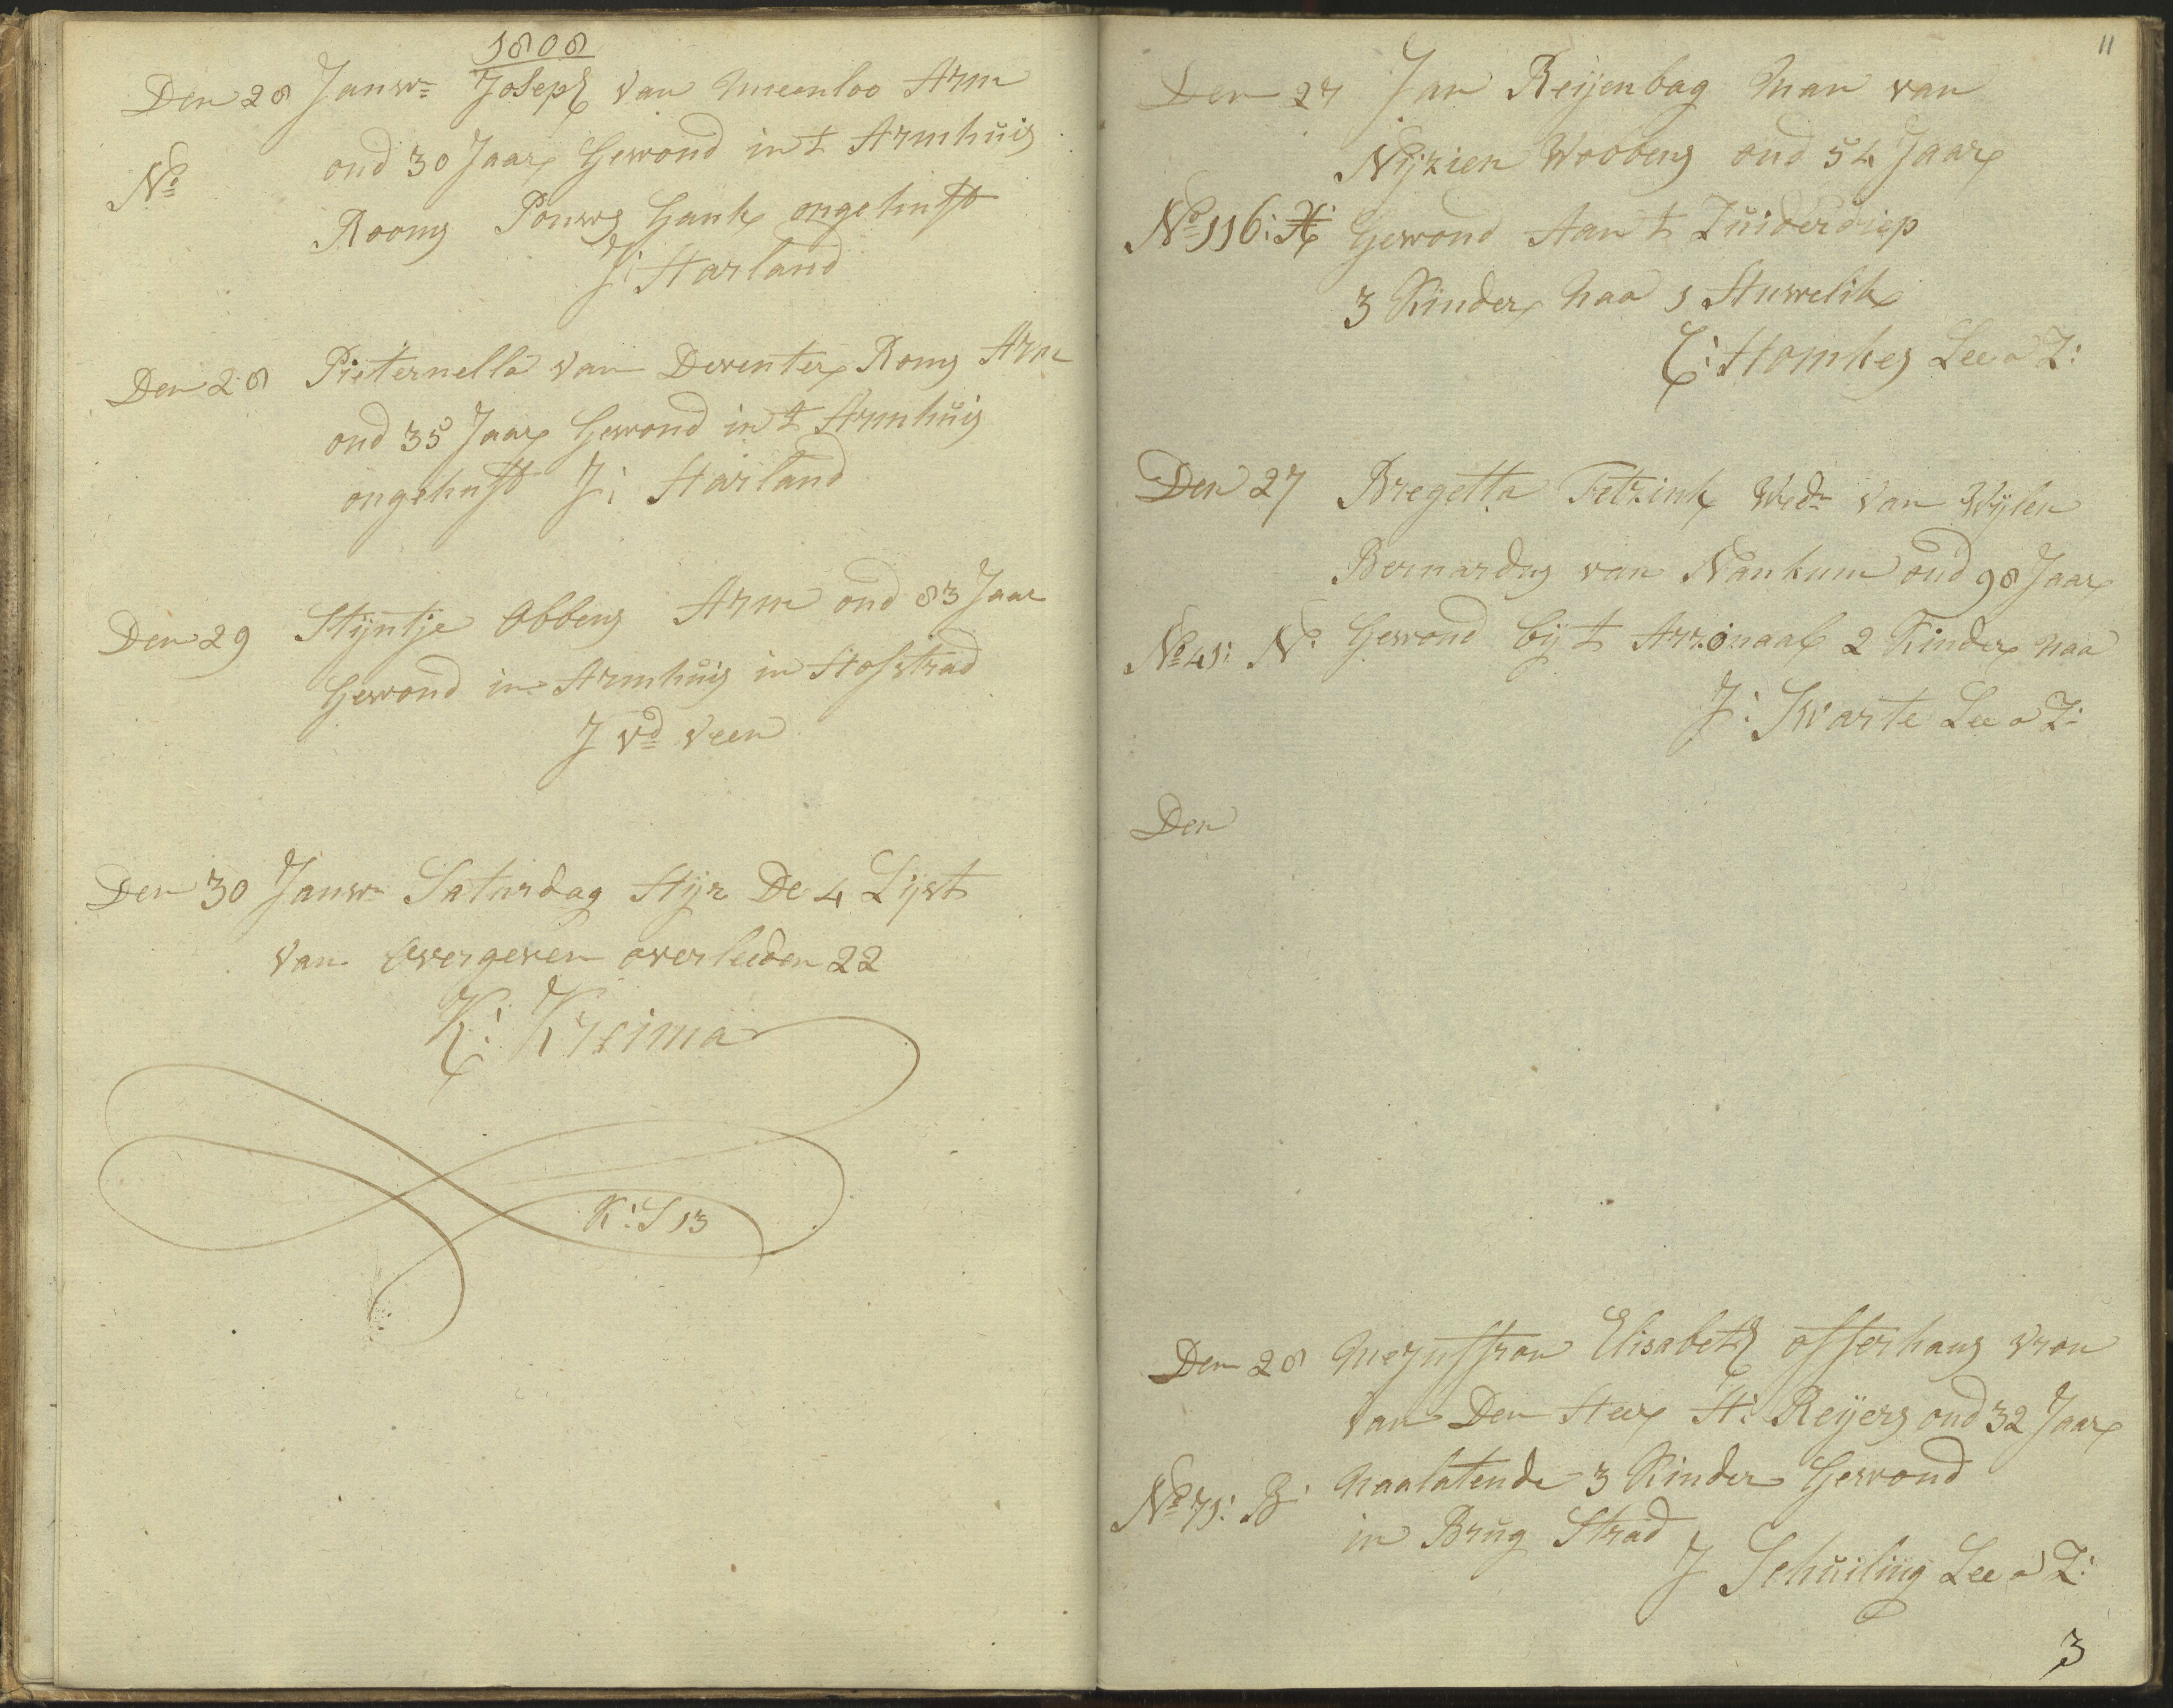 1808
Den 28 Janwr Joseph van Meenloo Arm
oud 30 Jaar Gewond in t Armhuis
No
Rooms Pouwos Gank ongehuft
J: Harland
Den 28 Pieternella van Deventer Roms Arm
oud 35 Jaar Gewond in t Armhuis
ongehuft J: Harland
Den 29 Stijntje Obbens Arm oud 83 Jaar
Gewond in Armhuis in Hofstrad
J vd Veen
Den 30 Janwr Saturdag Hijr De 4 Lijst
van overgeven overleeden 22
K: Kreima
K: S 13
11
Den 27 Jan Reijenbag Man van
Nijzien Wobbens oud 54 Jaar
No 116: H: Gewond Aan t Zuiderdiep
3 Kinder naa 1 Huwelik
E: Homkes Lee a Z:
Den 27 Bregetta Fetzink Wedr van Wijlen
Bernardus van Nankum oud 98 Jaar
No 41: N: Gewond bij t Arzonaal 2 Kinder naa
J: Swarte Lee a Z:
Den
Den 28 Mejuffrou Elisabeth offerhaus Vrou
van Den Heer H: Reijers oud 32 Jaar
No 71: B: Naalatende 3 Kinder Gewond
in Brug Strad
J Schuiling Lee a Z:
3